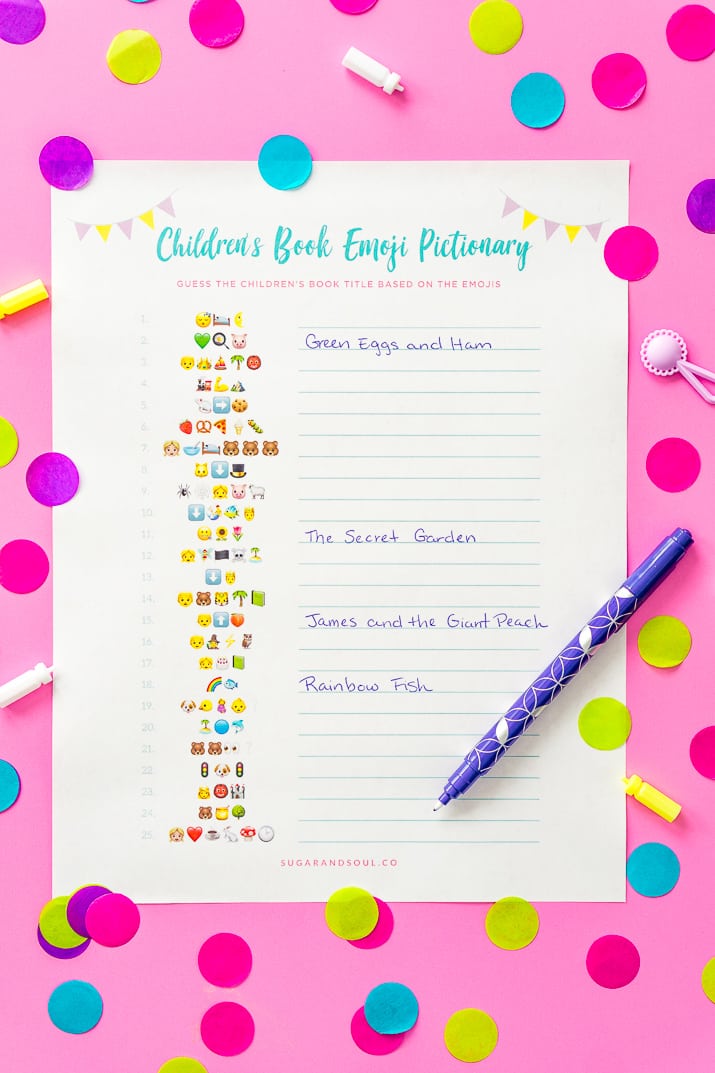 Children's Book Emoji Pictionary
GUESS THE CHILDREN'S BOOK TITLE BASED ON THE EMOJIS
1.
2. Green Eggs and Ham
3.
4.
5.
6.
7.
8.
9.
10.
11. The Secret Garden
12.
13.
14.
15. James and the Giant Peach
16.
17.
18. Rainbow Fish
19.
20.
21.
22.
23.
24.
25.
SUGARANDSOUL.CO